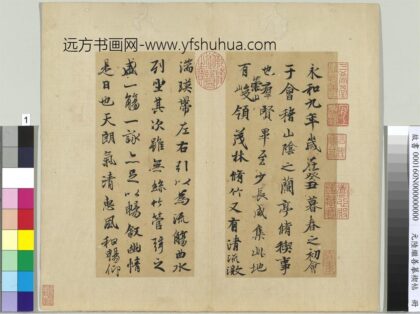 远方书画网- www.yfshuhua.com
永和九年歲在癸丑暮春之初會
于會稽山陰之蘭亭脩稧事
也羣賢畢至少長咸集此地
有崇山峻領茂林脩竹又有清流激
湍暎帶左右引以為流觴曲水
列坐其次雖無絲竹管弦之
盛一觴一詠亦足以暢叙幽情
是日也天朗氣清惠風和暢仰
1
故書 000160N000000000 元陸繼善摹禊帖 冊